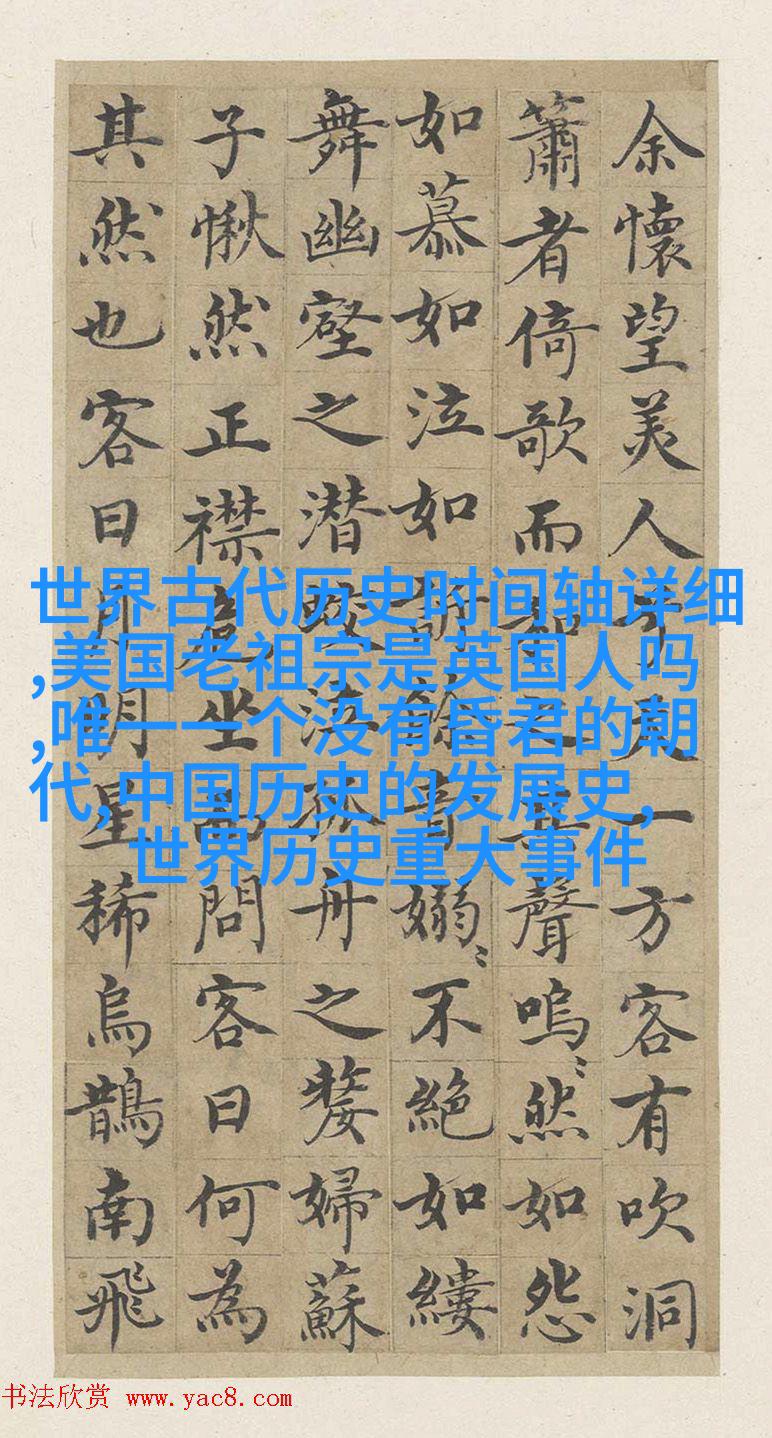 余懷望美人兮天一方客有吹洞
簫者倚歌而和之其聲嗚〻然如怨
如慕如泣如訴餘音嫋〻不絕如縷
舞幽壑之潛蛟泣孤舟之嫠婦蘇
子愀然正襟危坐而問客曰何為
其然也客曰月明星稀烏鵲南飛
世界古代历史时间轴详细
,美国老祖宗是英国人吗
,唯一一个没有昏君的朝
代,中国历史的发展史,
世界历史重大事件
书法欣赏 www.yac8.com